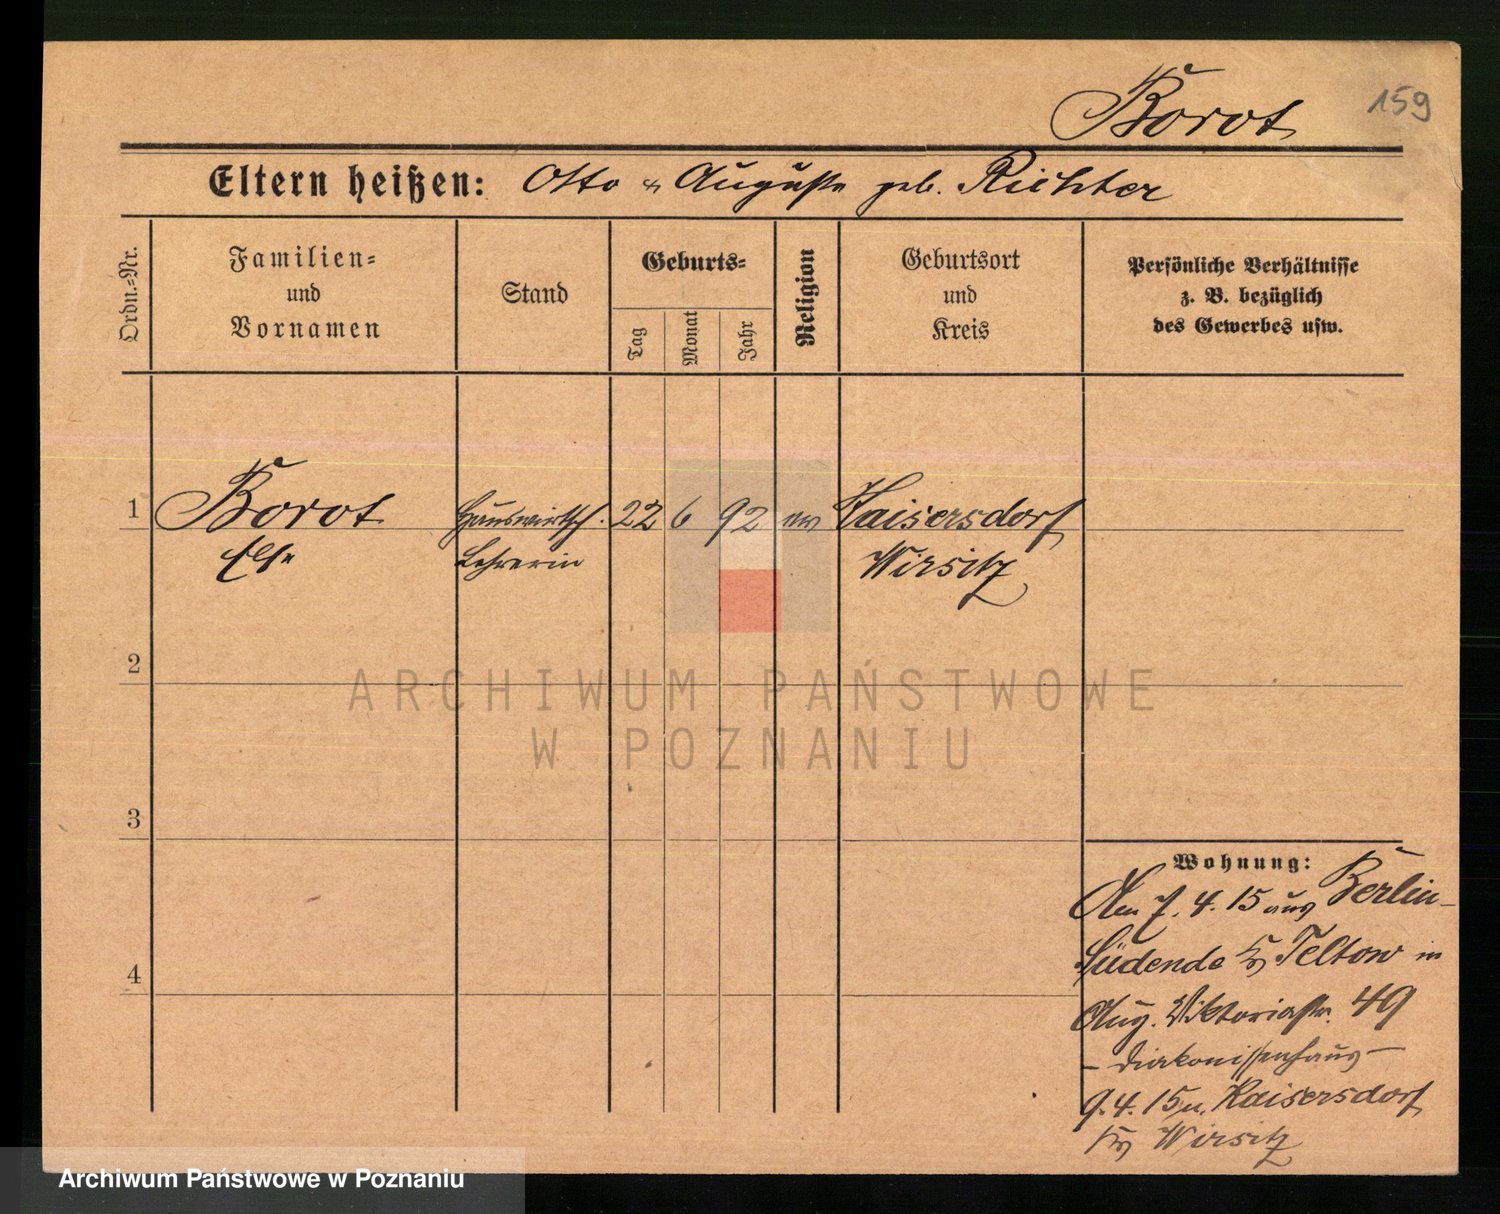 Borot
159
Eltern heißen: Otto u Auguste geb. Richter
Ordn.-Nr.
Familien-
und
Vornamen
Stand
Geburts-
Tag
Monat
Jahr
Religion
Geburtsort
und
Kreis
Persönliche Verhältnisse
z. B. bezüglich
des Gewerbes usw.
1 Borot Hauswirtsch. 22 6 92 ev Kaisersdorf
Else Lehrerin Wirsitz
2
ARCHIWUM PAŃSTWOWE
W POZNANIU
3
Wohnung:
Am 7. 4. 15 aus Berlin-
Südende Kr Teltow in
4
Aug. Viktoriastr. 49
- Diakonissenhaus -
9. 4. 15 n. Kaisersdorf
Kr Wirsitz
Archiwum Państwowe w Poznaniu